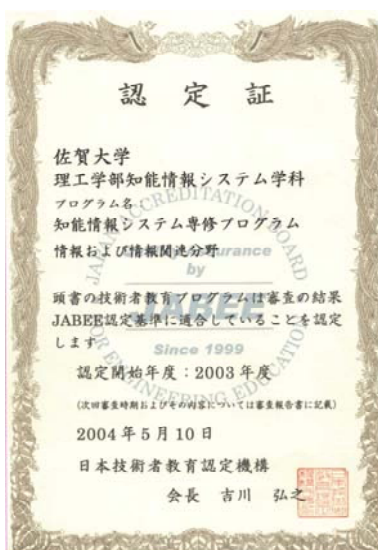 認定証
佐賀大学
理工学部知能情報システム学科
プログラム名:
知能情報システム専修プログラム
情報および情報関連分野
頭書の技術者教育プログラムは審査の結果
JABEE認定基準に適合していることを認定
します
認定開始年度：2003年度
(次回審査時期およびその内容については審査報告書に記載)
2004年5月10日
日本技術者教育認定機構
会長 吉川 弘之
JAPAN ACCREDITATION BOARD
FOR ENGINEERING EDUCATION
by
JABEE
Since 1999